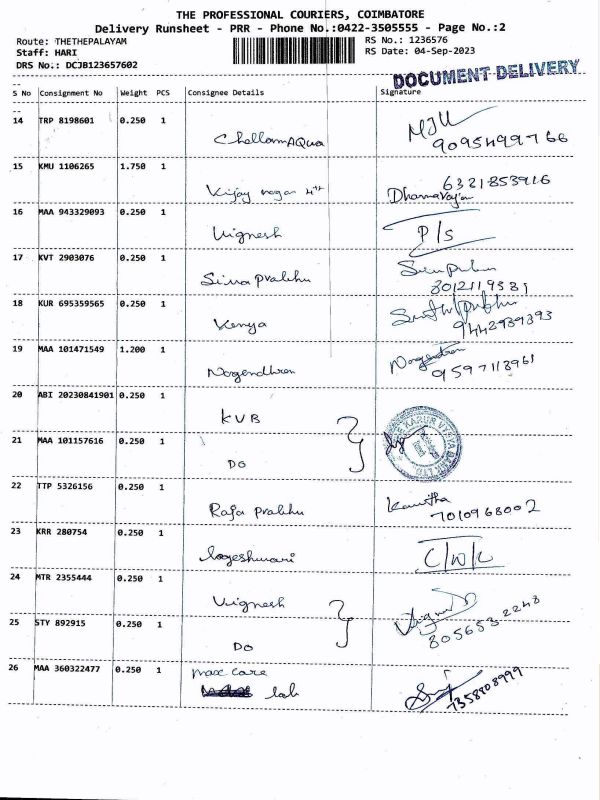 THE PROFESSIONAL COURIERS, COIMBATORE
Delivery Runsheet - PRR - Phone No.:0422-3505555 - Page No.:2
Route: THETHEPALAYAM RS No.: 1236576
Staff: HARI RS Date: 04-Sep-2023
DRS No.: DCJB123657602
DOCUMENT DELIVERY
S No Consignment No Weight PCS Consignee Details Signature
14 TRP 8198601 0.250 1
ChellamAqua 9095499766
15 KMU 1106265 1.750 1
Vijay nagar 4th 6321853916
16 MAA 943329093 0.250 1
Vignesh P/S
17 KVT 2903076 0.250 1
Siva Prabhu
8012119381
18 KUR 695359565 0.250 1
Kenya
9442939393
19 MAA 101471549 1.200 1
Nagendhran Nagendran
9597113961
20 ABI 20230841901 0.250 1
KVB
21 MAA 101157616 0.250 1
DO
22 TTP 5326156 0.250 1
Raja Prabhu Kavitha
7010968002
23 KRR 280754 0.250 1
logeshwari C/W/L
24 MTR 2355444 0.250 1
Vignesh
25 STY 892915 0.250 1
DO 805653 2248
26 MAA 360322477 0.250 1
max care
lab 7358808999